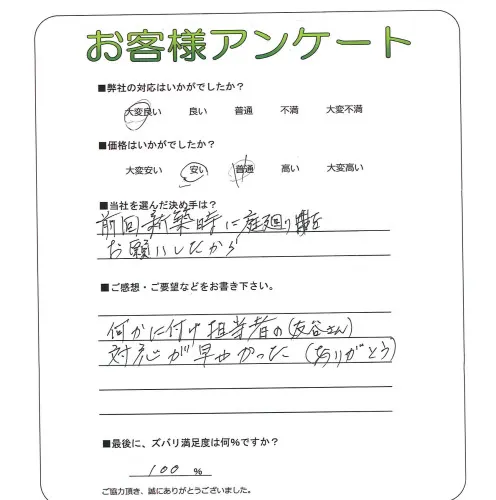 お客様アンケート
■弊社の対応はいかがでしたか？
大変良い 良い 普通 不満 大変不満
■価格はいかがでしたか？
大変安い 安い 普通 高い 大変高い
■当社を選んだ決め手は？
前回新築時に庭廻りを
お願いしたから
■ご感想・ご要望などをお書き下さい。
何かに付け担当者の(友谷さん)
対応が早かった(ありがとう)
■最後に、ズバリ満足度は何%ですか？
100 %
ご協力頂き、誠にありがとうございました。